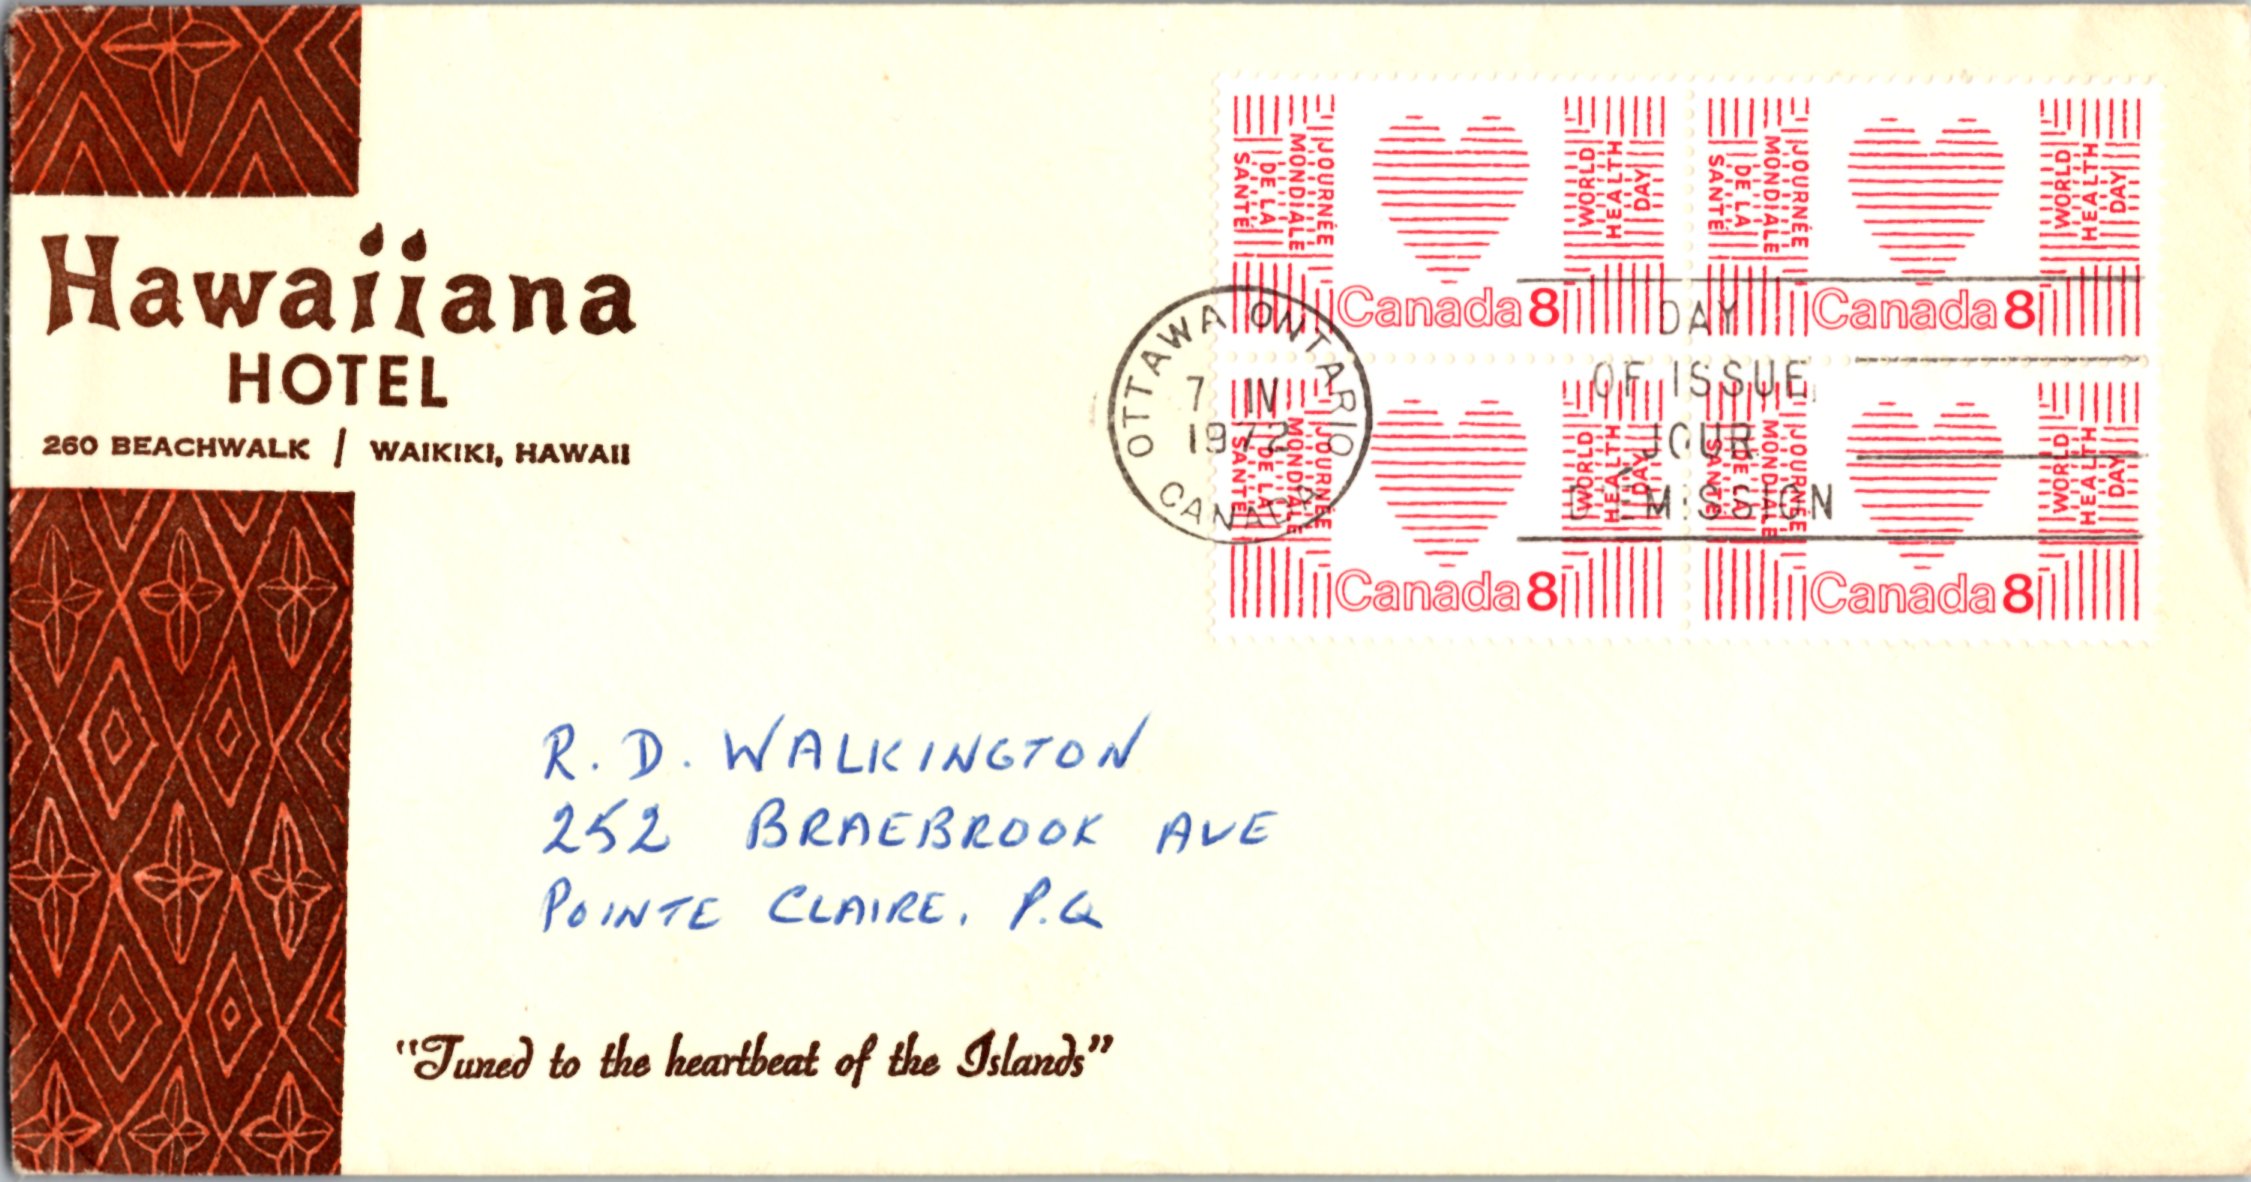 Hawaiiana
HOTEL
260 BEACHWALK / WAIKIKI, HAWAII
JOURNÉE
MONDIALE
DE LA
SANTÉ
WORLD
HEALTH
DAY
Canada 8
JOURNÉE
MONDIALE
DE LA
SANTÉ
WORLD
HEALTH
DAY
Canada 8
JOURNÉE
MONDIALE
DE LA
SANTÉ
WORLD
HEALTH
DAY
Canada 8
JOURNÉE
MONDIALE
DE LA
SANTÉ
WORLD
HEALTH
DAY
Canada 8
OTTAWA ONTARIO
7 IV
1972
CANADA
DAY
OF ISSUE
JOUR
D'ÉMISSION
R. D. WALKINGTON
252 BRAEBROOK AVE
POINTE CLAIRE, P.Q
"Tuned to the heartbeat of the Islands"